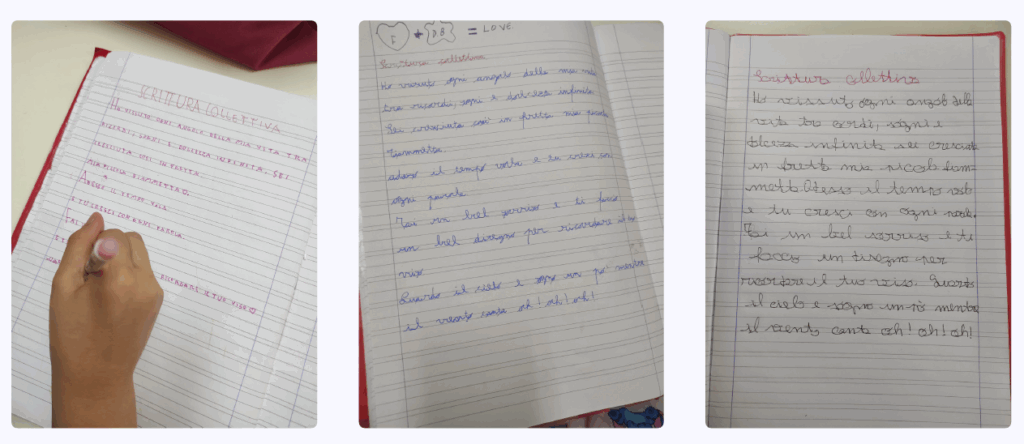 SCRITTURA COLLETTIVA
HO VISSUTO OGNI ANGOLO DELLA MIA VITA TRA
RICORDI, SOGNI E DOLCEZZA INFINITA. SEI
CRESCIUTA COSÌ IN FRETTA
MIA PICCOLA FIAMMETTA
ADESSO IL TEMPO VOLA
E TU CRESCI CON OGNI PAROLA.
FAI
IL TUO VISO
I + D.B = LOVE
Scrittura collettiva
Ho vissuto ogni angolo della mia vita
tra ricordi, sogni e dolcezza infinita
Sei cresciuta così in fretta mia piccola
fiammetta
adesso il tempo vola e tu cresci con
ogni parola
Fai un bel sorriso e ti faccio
un bel disegno per ricordare il tuo
viso
Guardo il cielo e sogno un po' mentre
il vento canta oh! oh! oh!
Scrittura collettiva
Ho vissuto ogni angolo della
vita tra cordi, sogni e
infinita sei cresciuta
in fretta mia piccola fiam
metta Adesso il tempo vola
e tu cresci con ogni
Fai un bel sorriso e ti
faccio un disegno per
ricordare il tuo viso. Guardo
il cielo e sogno un pò mentre
il vento canta oh! oh! oh!